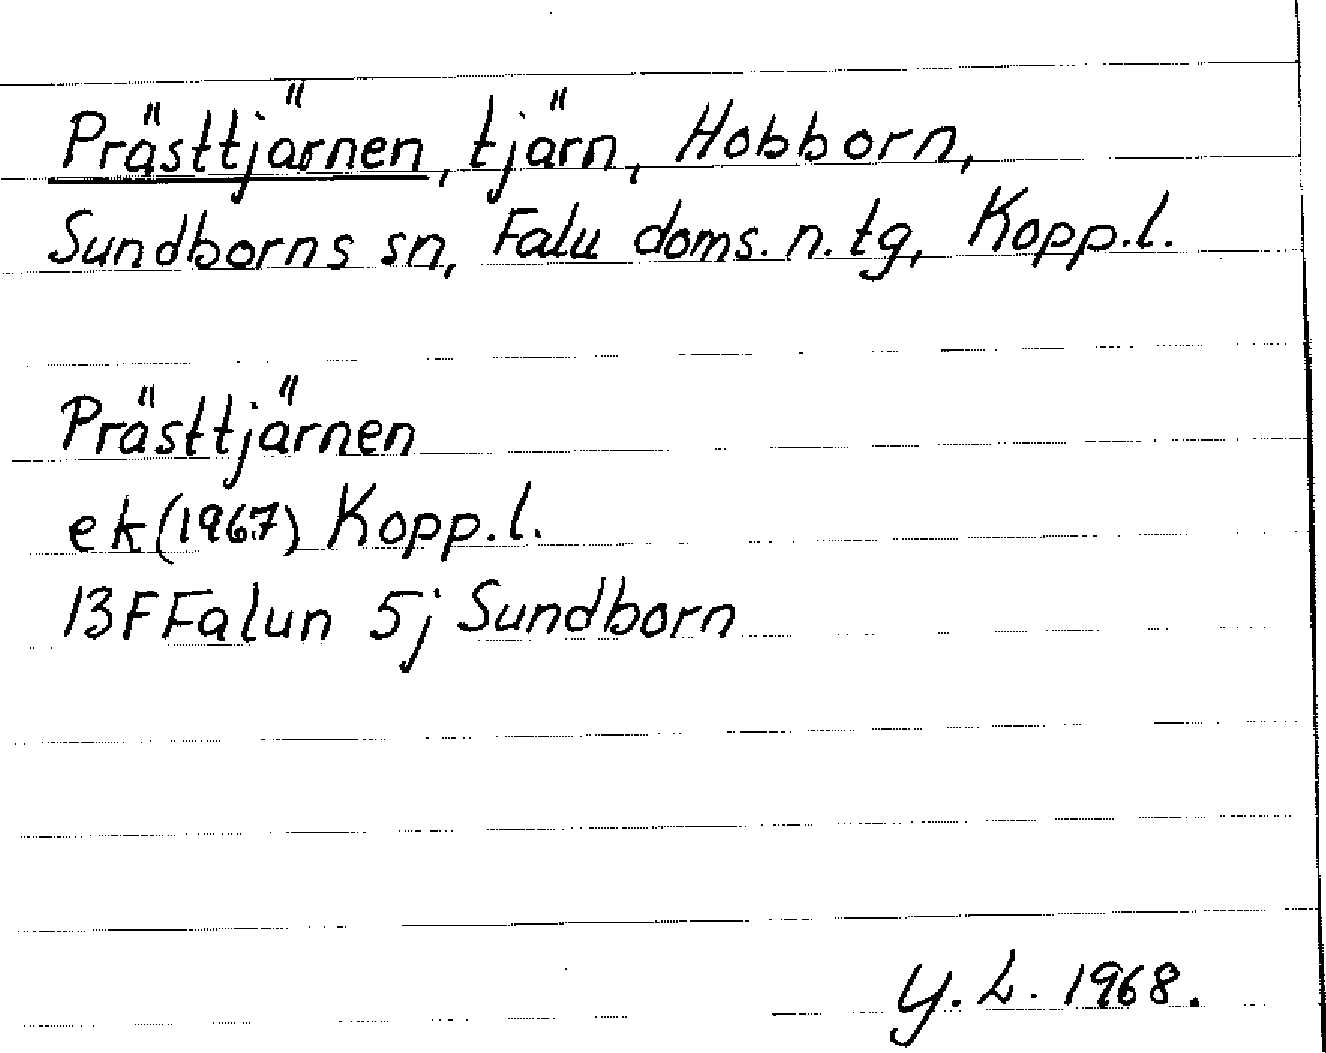 Prästtjärnen, tjärn, Hobborn,
Sundborns sn, Falu doms. n. tg, Kopp.l.
Prästtjärnen
ek (1967) Kopp.l.
13F Falun 5j Sundborn
Y. L. 1968.